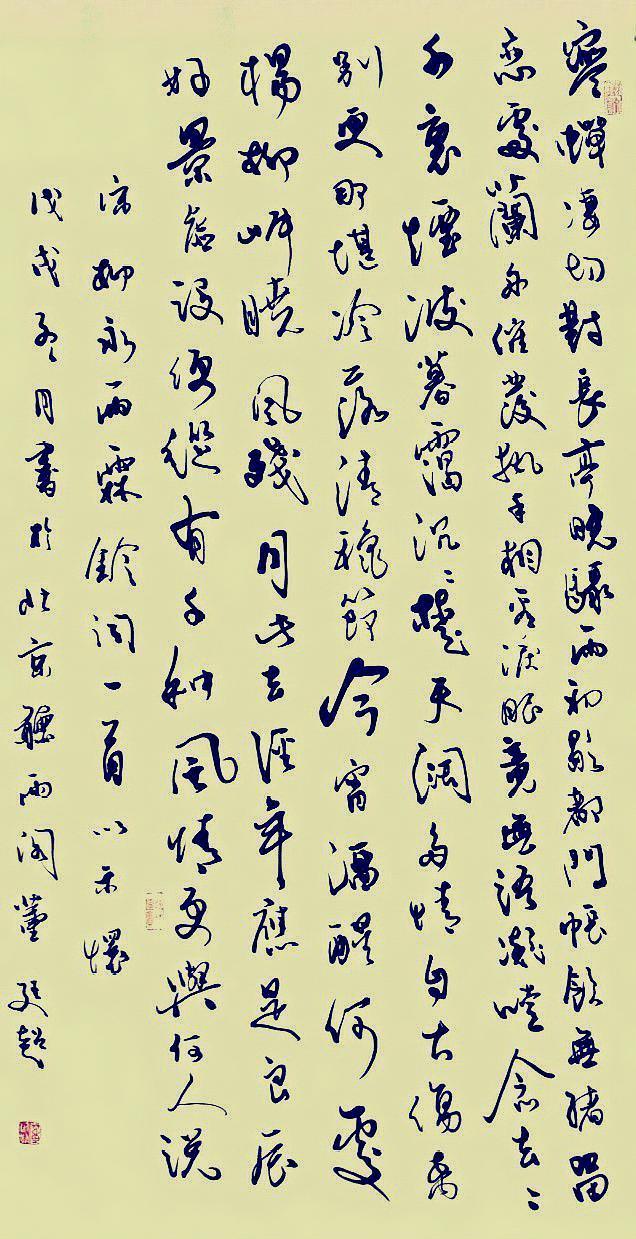 寒蟬凄切對長亭晚驟雨初歇都門帳飲無緒留
戀處蘭舟催發執手相看淚眼竟無語凝噎念去〻
千裏煙波暮靄沉〻楚天闊多情自古傷離
別更那堪冷落清秋節今宵酒醒何處
楊柳岸曉風殘月此去經年應是良辰
好景虛設便縱有千种風情更與何人說
宋柳永雨霖鈴詞一首以示懷
戊戌冬月書於北京聽雨閣董廷超